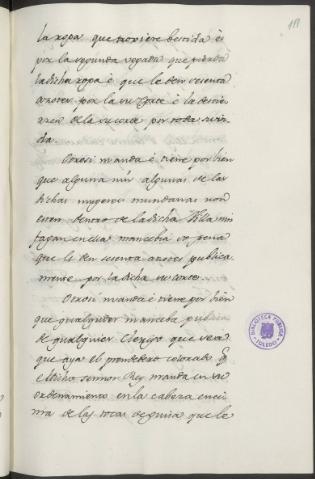 111
la ropa que troxiere bestida é
por la segunda vegada que pierda
la dicha ropa é que le den sesenta
azotes por la su Corte é la destier
aren de la su corte por toda su vi
da.
Otrosi manda é tiene por bien
que alguna nin algunas de las
dichas mugeres mundanas non
esten dentro de la dicha Villa nin
fagan en ella mancebia so pena
que le den sesenta azotes publica
mente por la dicha su corte.
Otrosi manda é tiene por bien
que qualquier manceba publica
de qualquier Clerigo que sea
que aya el prendedero colorado q
el dicho sennor Rey manda en su
ordenamiento en la cabeza enci
ma de las tocas de guisa que le
BIBLIOTECA PUBLICA
TOLEDO